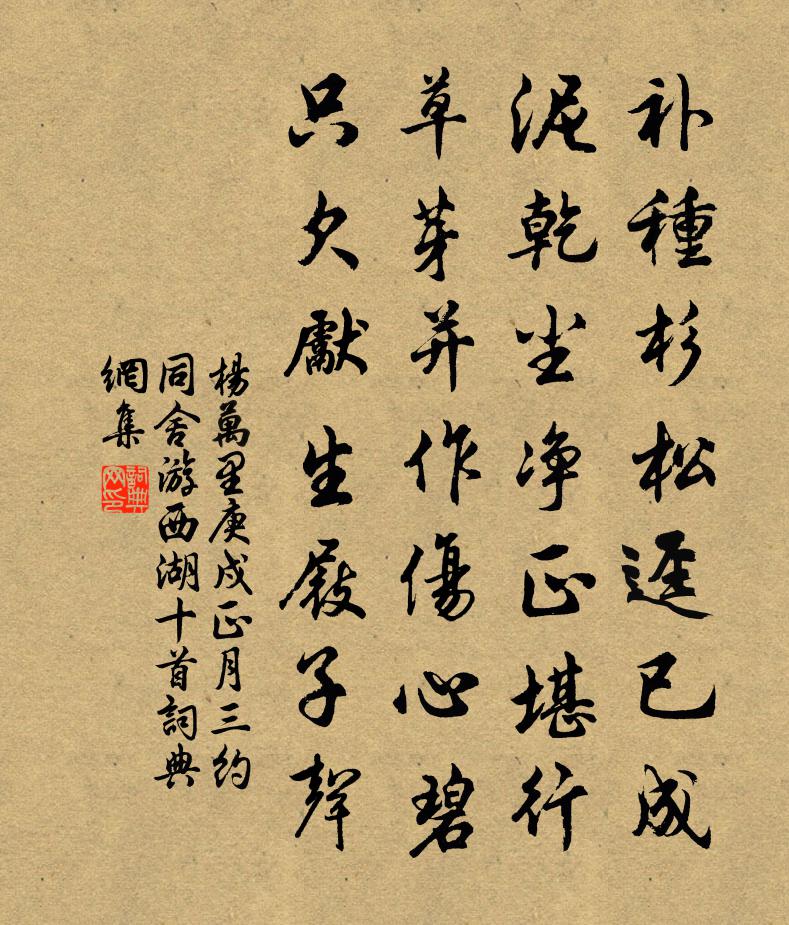 补種杉松逕已成
泥乾尘净正堪行
草芽并作傷心碧
只欠獻生屐子聲
楊萬里庚戌正月三約
同舍游西湖十首詞典
網集
詞典
网印